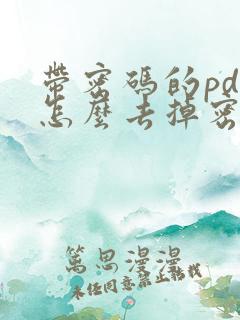 帶密碼的pd
怎麼去掉密
篤思漫漫
未经同意禁止转载